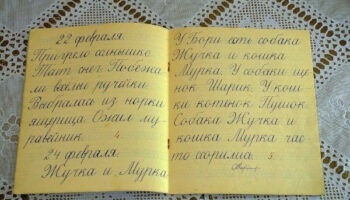 22 февраля.
Пригрело солнышко.
Тает снег. Побежа-
ли весёлые ручейки.
Выбралась из норки
ящерица. Ожил му-
равейник. 4.
24 февраля.
Жучка и Мурка
У Бори есть собака
Жучка и кошка
Мурка. У собаки ще-
нок Шарик. У кош-
ки котёнок Пушок.
Собака Жучка и
кошка Мурка час-
то ссорились. 5.